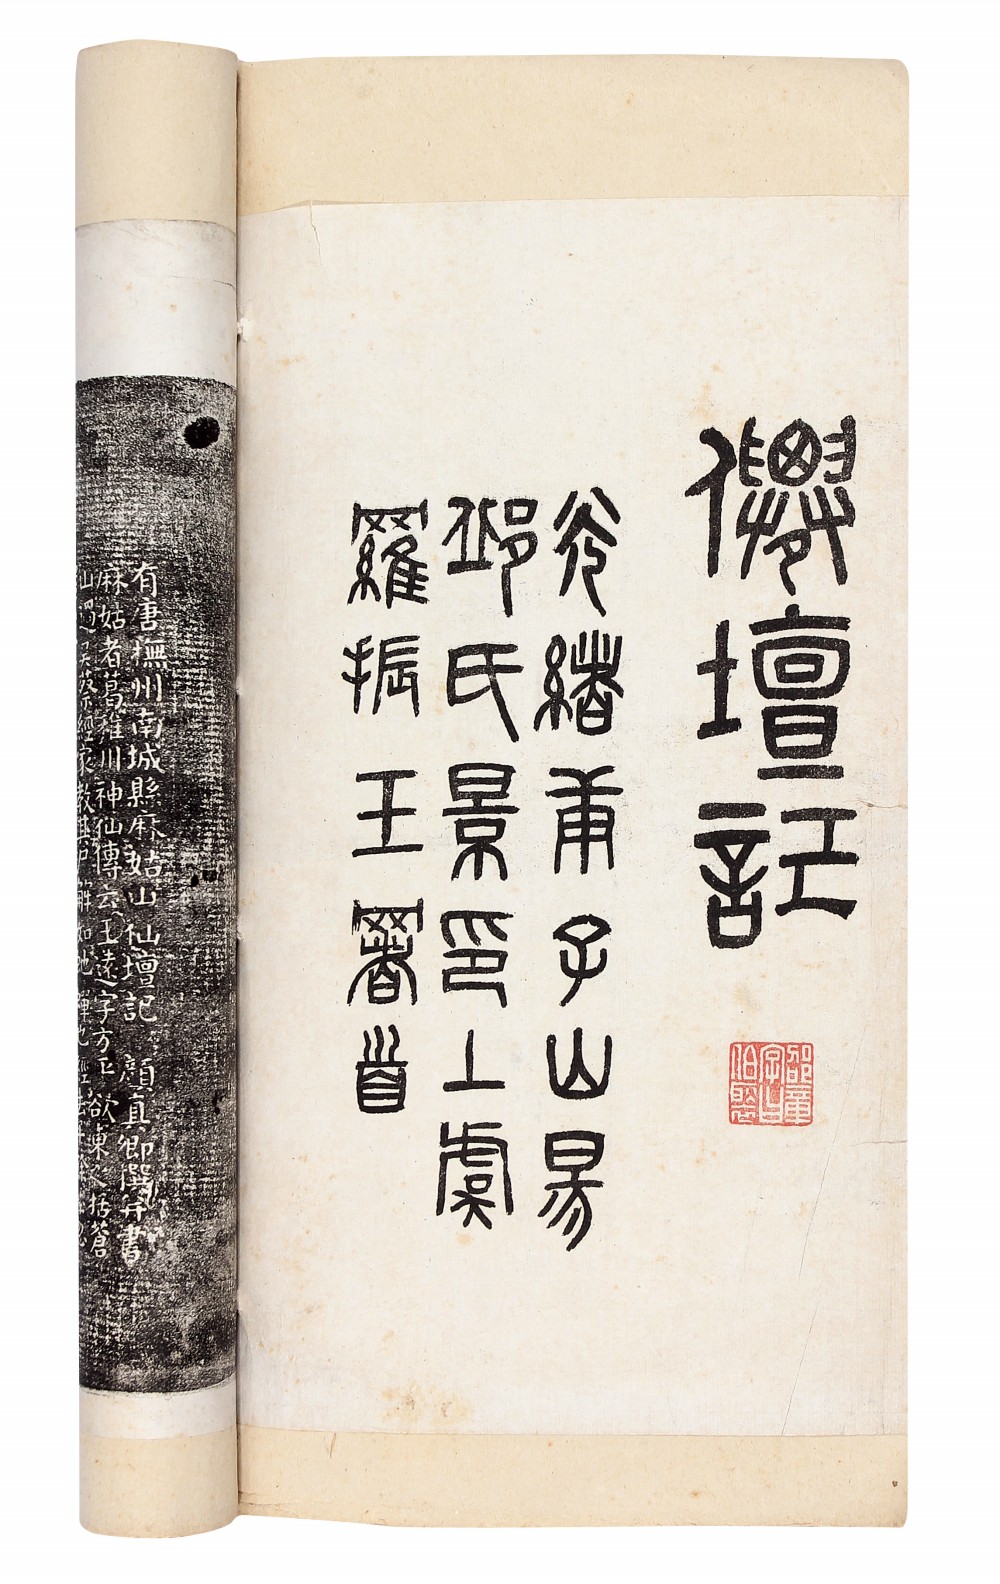 僊壇記
光緒庚子山昜
邱氏景印上虞
羅振玉署首
邵章
字曰
伯褧
有唐撫州南城縣麻姑山仙壇記 顏真卿撰并書
麻姑者葛稚川神仙傳云王遠字方平欲東之括蒼
山過吳蔡經家教其尸解如虵蟬也經去